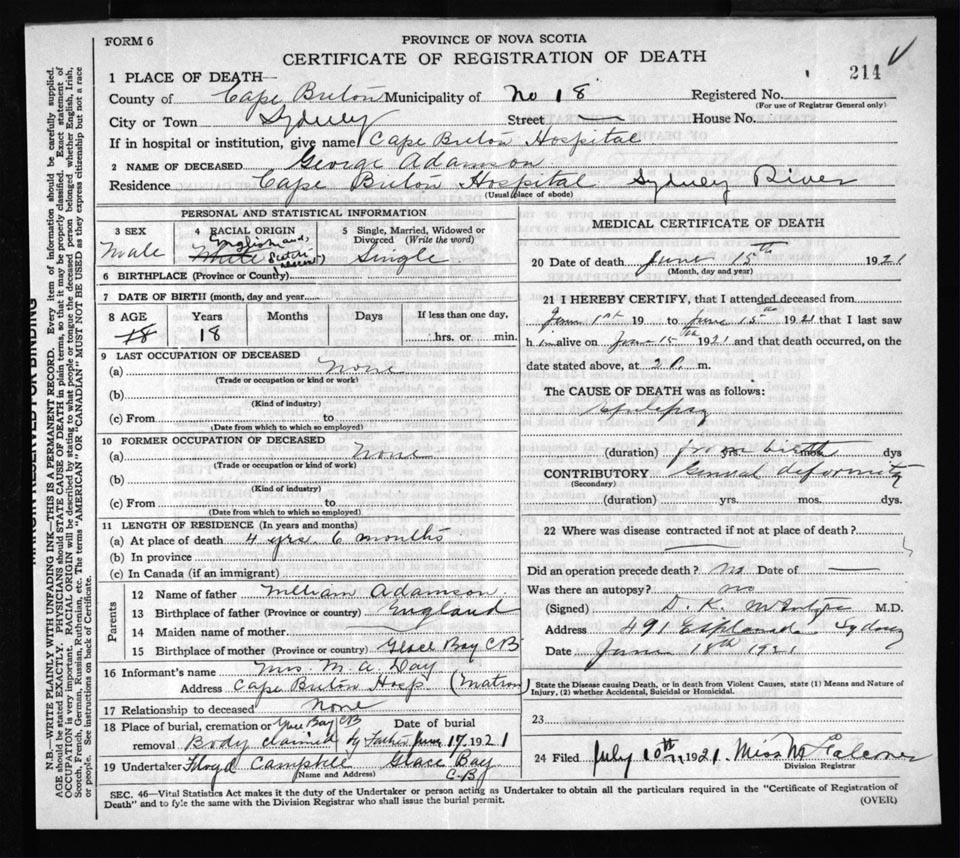 FORM 6
PROVINCE OF NOVA SCOTIA
CERTIFICATE OF REGISTRATION OF DEATH
214
1 PLACE OF DEATH—
County of Cape Breton Municipality of No 18 Registered No.
(For use of Registrar General only)
City or Town Sydney Street — House No.
If in hospital or institution, give name Cape Breton Hospital
2 NAME OF DECEASED George Adamson
Residence Cape Breton Hospital Sydney River
(Usual place of abode)
PERSONAL AND STATISTICAL INFORMATION
3 SEX
Male
4 RACIAL ORIGIN
English and
White Scotch
descent)
5 Single, Married, Widowed or Divorced (Write the word)
Single
6 BIRTHPLACE (Province or Country)
7 DATE OF BIRTH (month, day and year)
8 AGE Years Months Days If less than one day,
18 18 hrs. or min.
9 LAST OCCUPATION OF DECEASED
(a) None
(Trade or occupation or kind or work)
(b)
(Kind of industry)
(c) From to
(Date from which to which so employed)
10 FORMER OCCUPATION OF DECEASED
(a) None
(Trade or occupation or kind of work)
(b)
(Kind of industry)
(c) From to
(Date from which to which so employed)
11 LENGTH OF RESIDENCE (In years and months)
(a) At place of death 4 yrs. 6 months
(b) In province
(c) In Canada (if an immigrant)
Parents
12 Name of father William Adamson
13 Birthplace of father (Province or country) England
14 Maiden name of mother
15 Birthplace of mother (Province or country) Glace Bay CB
16 Informant's name Mrs. M. A. Day
Address Cape Breton Hosp (Matron)
17 Relationship to deceased None
18 Place of burial, cremation or removal Bay CB
Body claimed by Father
Date of burial
June 17, 1921
19 Undertaker Floyd Campbell Glace Bay
(Name and Address) C.B.
MEDICAL CERTIFICATE OF DEATH
20 Date of death June 15th 1921
(Month, day and year)
21 I HEREBY CERTIFY, that I attended deceased from
June 1st 19 to June 15th 1921 that I last saw
h im alive on June 15th 1921 and that death occurred, on the
date stated above, at 2 P. m.
The CAUSE OF DEATH was as follows:
Epilepsy
(duration) from birth dys
CONTRIBUTORY General deformity
(Secondary)
(duration) yrs. mos. dys.
22 Where was disease contracted if not at place of death?
Did an operation precede death? No Date of —
Was there an autopsy? No
(Signed) D. K. McIntyre M.D.
Address 491 Esplanade Sydney
Date June 18th 1921
State the Disease causing Death, or in death from Violent Causes, state (1) Means and Nature of
Injury, (2) whether Accidental, Suicidal or Homicidal.
23
24 Filed July 10th, 1921. Miss M Falconer
Division Registrar
SEC. 46—Vital Statistics Act makes it the duty of the Undertaker or person acting as Undertaker to obtain all the particulars required in the "Certificate of Registration of
Death" and to fyle the same with the Division Registrar who shall issue the burial permit.
(OVER)
MARGIN RESERVED FOR BINDING
N.B.—WRITE PLAINLY WITH UNFADING INK—THIS IS A PERMANENT RECORD. Every item of information should be carefully supplied.
AGE should be stated EXACTLY. PHYSICIANS should STATE CAUSE OF DEATH in plain terms, so that it may be properly classified. Exact statement of
OCCUPATION is very important. RACIAL ORIGIN will be described by stating to what people or tongue the deceased person belonged whether English, Irish,
Scotch, French, German, Russian, Ruthenian, etc. The terms "AMERICAN" OR "CANADIAN" MUST NOT BE USED as they express citizenship but not a race
or people. See instructions on back of Certificate.